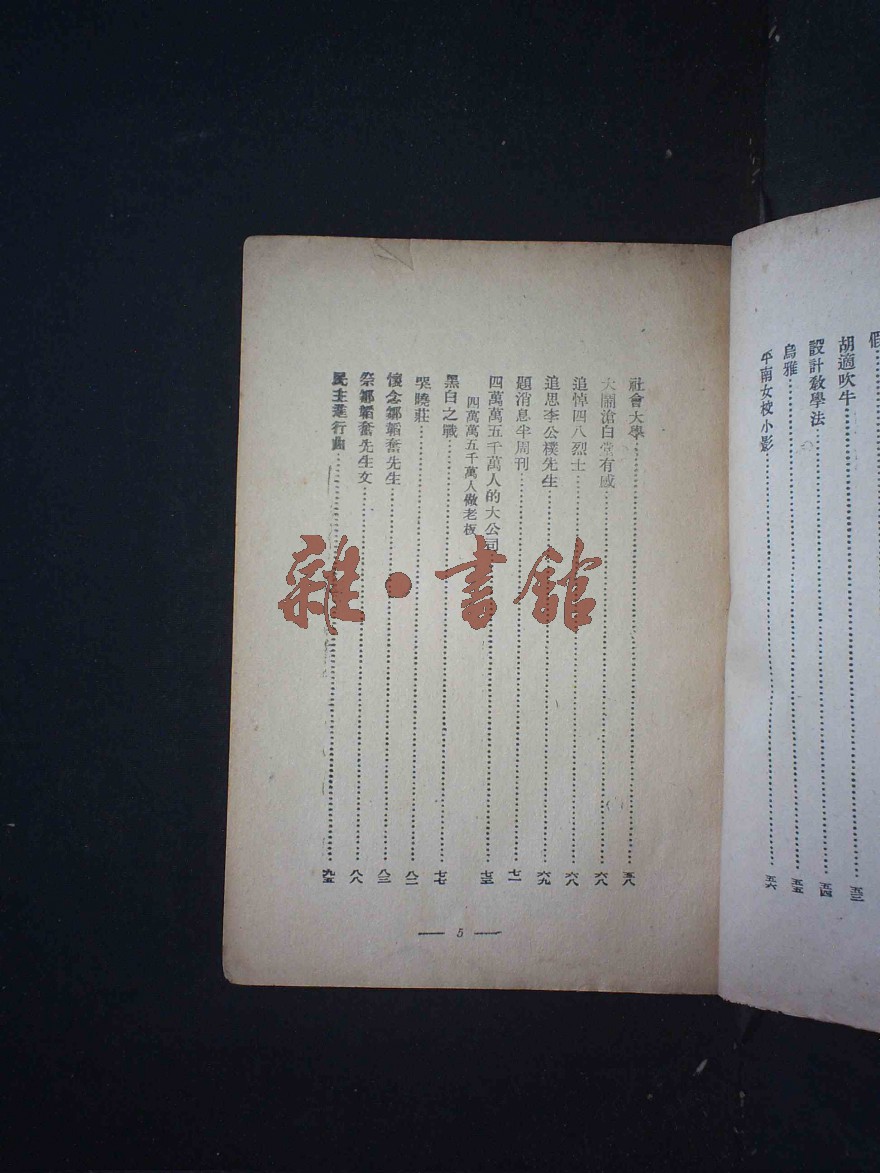 假
胡適吹牛……五三
設計教學法……五四
烏雅……五五
平南女校小影……五六
社會大學……五八
大鬧滄白堂有感……六八
追悼四八烈士……六八
追思李公樸先生……六九
題消息半周刊……七一
四萬萬五千萬人的大公司……七三
四萬萬五千萬人做老板
黑白之戰……七七
哭曉莊……八二
懷念鄒韜奮先生……八三
祭鄒韜奮先生文……八八
民主進行曲……九五
— 5 —
雜·書館